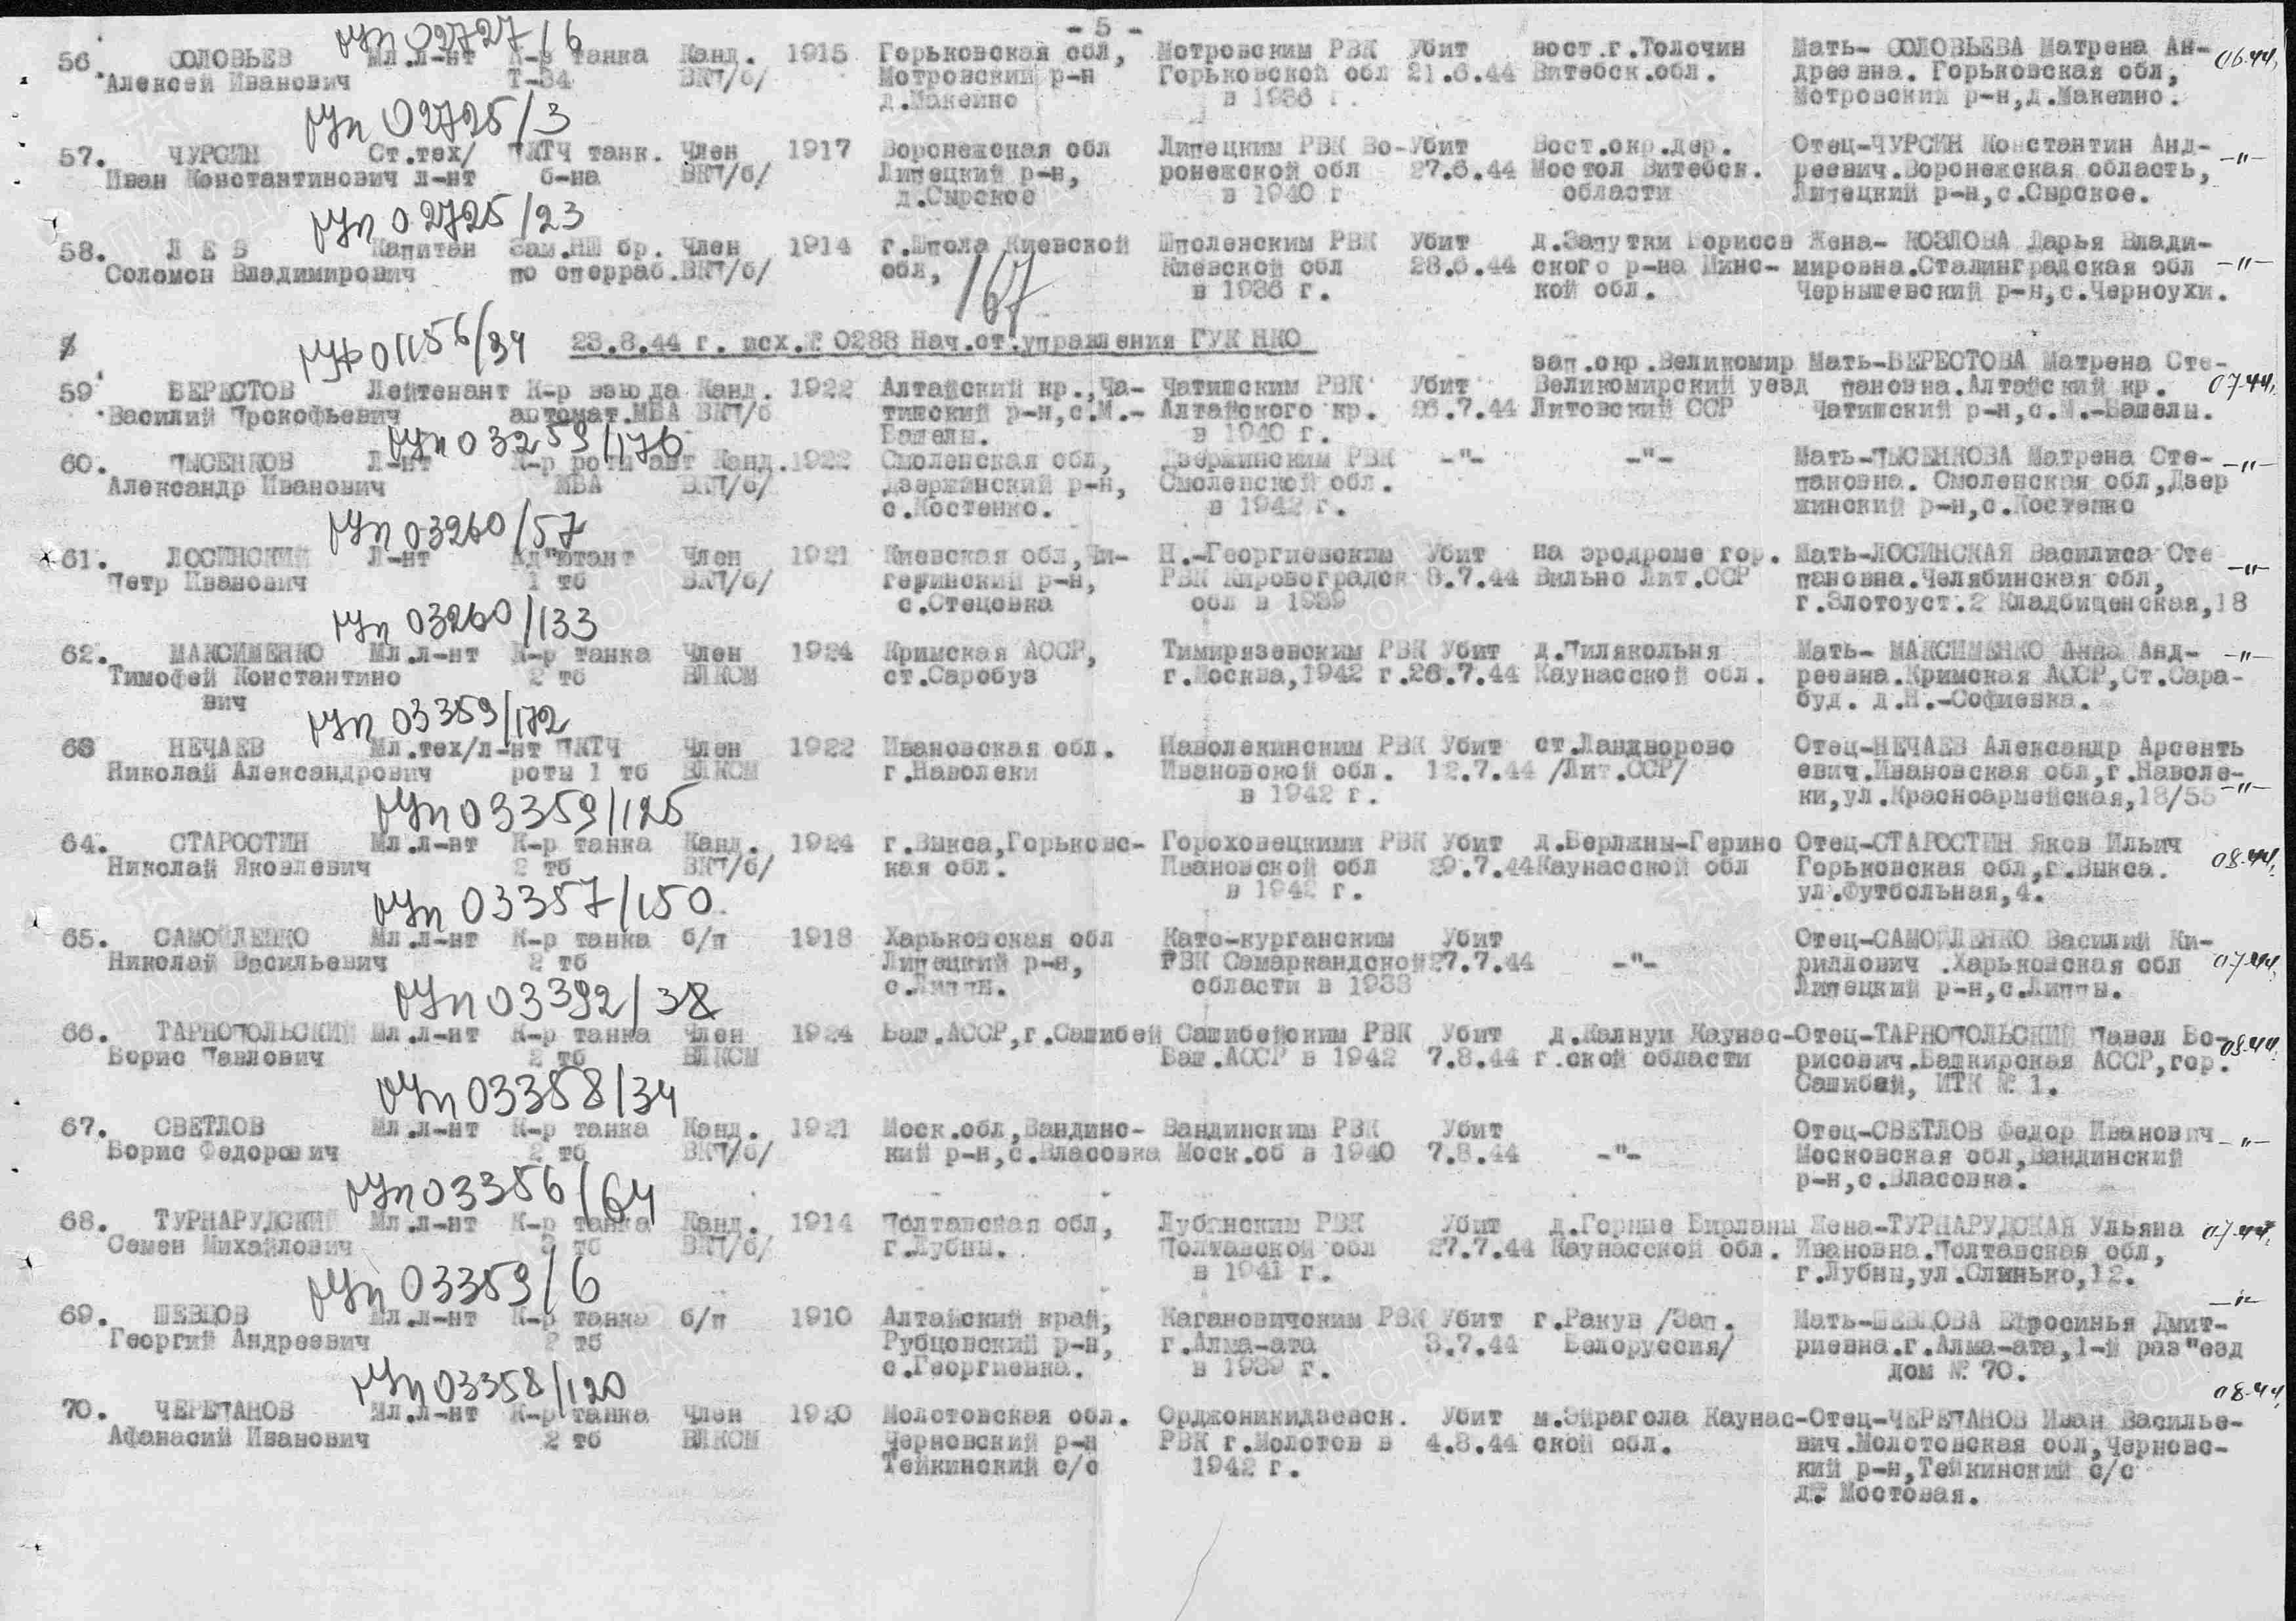 - 5 -
02727/6
56. СОЛОВЬЕВ Мл.л-нт К-р танка Канд. 1915 Горьковская обл, Мотровским РВК Убит вост.г.Толочин Мать- СОЛОВЬЕВА Матрена Ан- 06.44,
Алексей Иванович Т-34 ВКП/б/ Мотровский р-н Горьковской обл 21.6.44 Витебск.обл. дреевна. Горьковская обл,
д.Макеино в 1936 г. Мотровский р-н,д.Макеино.
02725/3
57. ЧУРСИН Ст.тех/ ПКТЧ танк. Член 1917 Воронежская обл Липецким РВК Во- Убит Вост.окр.дер. Отец-ЧУРСИН Константин Анд- -"-
Иван Константинович л-нт б-на ВКП/б/ Липецкий р-н, ронежской обл 27.6.44 Мостол Витебск. реевич.Воронежская область,
д.Сырское в 1940 г области Липецкий р-н,с.Сырское.
02725/23
58. Л Е В Капитан Зам.НШ бр. Член 1914 г.Шпола Киевской Шполенским РВК Убит д.Запутки Борисов Жена- КОЗЛОВА Дарья Влади-
Соломон Владимирович по операб.ВКП/б/ обл, Киевской обл 28.6.44 ского р-на Минс- мировна.Сталинградская обл -"-
167 в 1936 г. кой обл. Чернышевский р-н,с.Черноухи.
01156/34
23.8.44 г. исх.№ 0288 Нач.от.управления ГУК НКО
зап.окр.Великомир Мать-БЕРЕСТОВА Матрена Сте-
59 БЕРЕСТОВ Лейтенант К-р взвода Канд. 1922 Алтайский кр.,Ча- Чатишским РВК Убит Великомирский уезд пановна.Алтайский кр. 07.44,
Василий Прокофьевич автомат.МБА ВКП/б тишский р-н,с.М.- Алтайского кр. 26.7.44 Литовский ССР Чатишский р-н,с.М.-Башелы.
Башелы. в 1940 г.
03259/176
60. ЛЫСЕНКОВ Л-нт К-р роты авт Канд. 1922 Смоленская обл, Дзержинским РВК -"- -"- Мать-ЛЫСЕНКОВА Матрена Сте- -"-
Александр Иванович МБА ВКП/б/ Дзержинский р-н, Смоленской обл. пановна. Смоленская обл,Дзер
с.Костенко. в 1942 г. жинский р-н,с.Костенко
03260/57
61. ЛОСИНСКИЙ Л-нт Ад"ютант Член 1921 Киевская обл,Чи- Н.-Георгиевским Убит на эродроме гор. Мать-ЛОСИНСКАЯ Василиса Сте
Петр Иванович 1 тб ВКП/б/ геринский р-н, РВК Кировоградск 8.7.44 Вильно Лит.ССР пановна.Челябинская обл, -"-
с.Стецовка обл в 1939 г.Злотоуст.2 Кладбищенская,18
03260/133
62. МАКСИМЕНКО Мл.л-нт К-р танка Член 1924 Кримская АССР, Тимирязевским РВК Убит д.Пилякольня Мать- МАКСИМЕНКО Анна Анд- -"-
Тимофей Константино 2 тб ВЛКСМ ст.Саробуз г.Москва,1942 г.26.7.44 Каунасской обл. реевна.Кримская АССР,Ст.Сара-
вич буд. д.Н.-Софиевка.
03359/172
63 НЕЧАЕВ Мл.тех/л-нт ПКТЧ Член 1922 Ивановская обл. Наволекинским РВК Убит ст.Ландворово Отец-НЕЧАЕВ Александр Арсенть
Николай Александрович роты 1 тб ВЛКСМ г.Наволеки Ивановской обл. 12.7.44 /Лит.ССР/ евич.Ивановская обл,г.Наволе-
в 1942 г. ки,ул.Красноармейская,18/55 -"-
03359/125
64. СТАРОСТИН Мл.л-нт К-р танка Канд. 1924 г.Выкса,Горьковс- Гороховецкими РВК Убит д.Берляны-Герино Отец-СТАРОСТИН Яков Ильич
Николай Яковлевич 2 тб ВКП/б/ кая обл. Ивановской обл 29.7.44 Каунасской обл Горьковская обл,г.Выкса. 08.44,
в 1942 г. ул.Футбольная,4.
03357/150
65. САМОЙЛЕНКО Мл.л-нт К-р танка б/п 1918 Харьковская обл Като-курганским Убит Отец-САМОЙЛЕНКО Василий Ки-
Николай Васильевич 2 тб Липецкий р-н, РВК Самаркандской 27.7.44 -"- риллович .Харьковская обл 07.44,
с.Липпы. области в 1938 Липецкий р-н,с.Липпы.
03392/38
66. ТАРНОПОЛЬСКИЙ Мл.л-нт К-р танка Член 1924 Баш.АССР,г.Сашибей Сашибейским РВК Убит д.Калнуи Каунас- Отец-ТАРНОПОЛЬСКИЙ Павел Бо-
Борис Павлович 2 тб ВЛКСМ Баш.АССР в 1942 7.8.44 г.ской области рисович.Башкирская АССР,гор. 08.44,
Сашибей, ИТК № 1.
03358/34
67. СВЕТЛОВ Мл.л-нт К-р танка Канд. 1921 Моск.обл,Вандинс- Вандинским РВК Убит Отец-СВЕТЛОВ Федор Иванович -"-
Борис Федорович 2 тб ВКП/б/ кий р-н,с.Власовка Моск.об в 1940 7.8.44 -"- Московская обл,Вандинский
р-н,с.Власовка.
03356/64
68. ТУРНАРУДСКИЙ Мл.л-нт К-р танка Канд. 1914 Полтавская обл, Лубянским РВК Убит д.Горные Бирланы Жена-ТУРНАРУДСКАЯ Ульяна 07.44,
Семен Михайлович 2 тб ВКП/б/ г.Лубны. Полтавской обл 27.7.44 Каунасской обл. Ивановна.Полтавская обл,
в 1941 г. г.Лубны,ул.Слинько,12.
03359/6
69. ШЕВЦОВ Мл.л-нт К-р танка б/п 1910 Алтайский край, Кагановичским РВК Убит г.Ракув /Зап. Мать-ШЕВЦОВА Ефросинья Дмит- -"-
Георгий Андреевич 2 тб Рубцовский р-н, г.Алма-ата 3.7.44 Белоруссия/ риевна.г.Алма-ата,1-й раз"езд
с.Георгиевка. в 1939 г. дом № 70.
03358/120
70. ЧЕРЕПАНОВ Мл.л-нт К-р танка Член 1920 Молотовская обл. Орджоникидзевск. Убит м.Эйрагола Каунас- Отец-ЧЕРЕПАНОВ Иван Василье- 08.44,
Афанасий Иванович 2 тб ВЛКСМ Черновский р-н РВК г.Молотов в 4.8.44 ской обл. вич.Молотовская обл,Черновс-
Тейкинский с/с 1942 г. кий р-н,Тейкинский с/с
д. Мостовая.